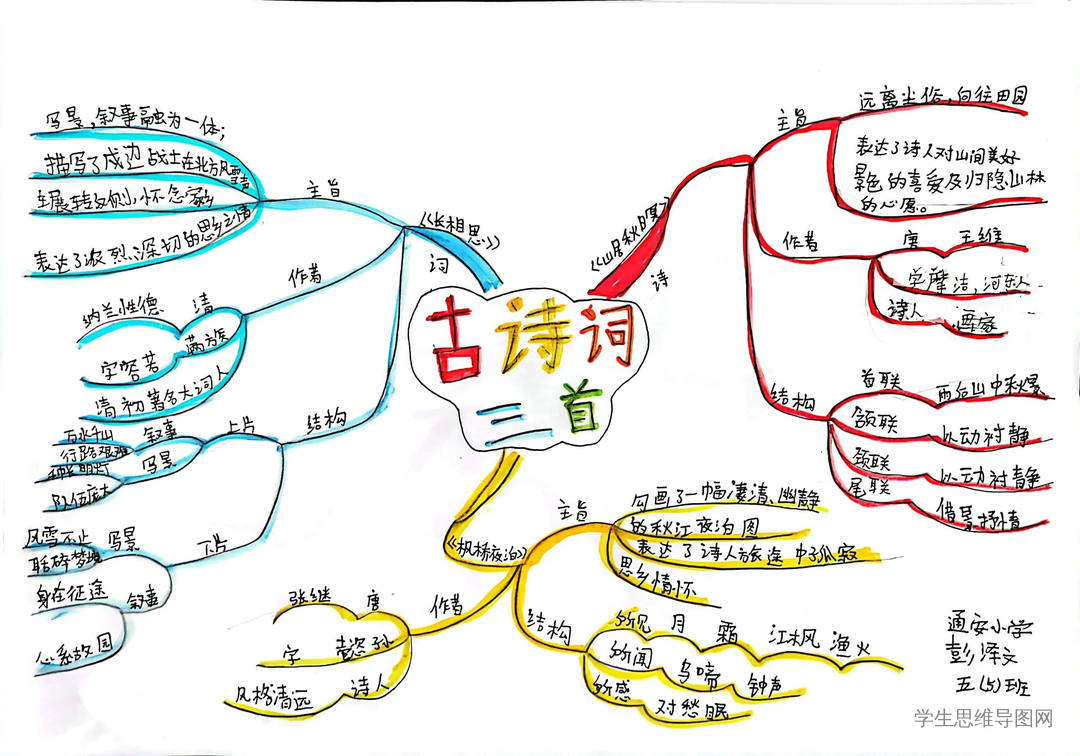 古诗词
三首
《长相思》
词
主旨
写景,叙事融为一体;
描写了戍边战士在北方风雪声
辗转反侧,怀念家乡
表达了浓烈、深切的思乡之情
作者
清
纳兰性德
满方族
字容若
清初著名大词人
结构
上片
叙事
万水千山
行路艰难
写景
种长明灯
队伍庞大
下片
写景
风雪不止
聒碎梦境
叙事
身在征途
心系故园
《山居秋暝》
诗
主旨
远离尘俗,向往田园
表达了诗人对山间美好
景色的喜爱及归隐山林
的心愿。
作者
唐
王维
字摩洁,河东人
诗人
画家
结构
首联
雨后山中秋景
颔联
以动衬静
颈联
以动衬静
尾联
借景抒情
《枫桥夜泊》
主旨
勾画了一幅凄清、幽静
的秋江夜泊图
表达了诗人旅途中孤寂
思乡情怀
作者
唐
张继
字
懿孙
诗人
风格清远
结构
所见
月
霜
江枫
渔火
所闻
乌啼
钟声
所感
对愁眠
通安小学
彭泽文
五(5)班
学生思维导图网